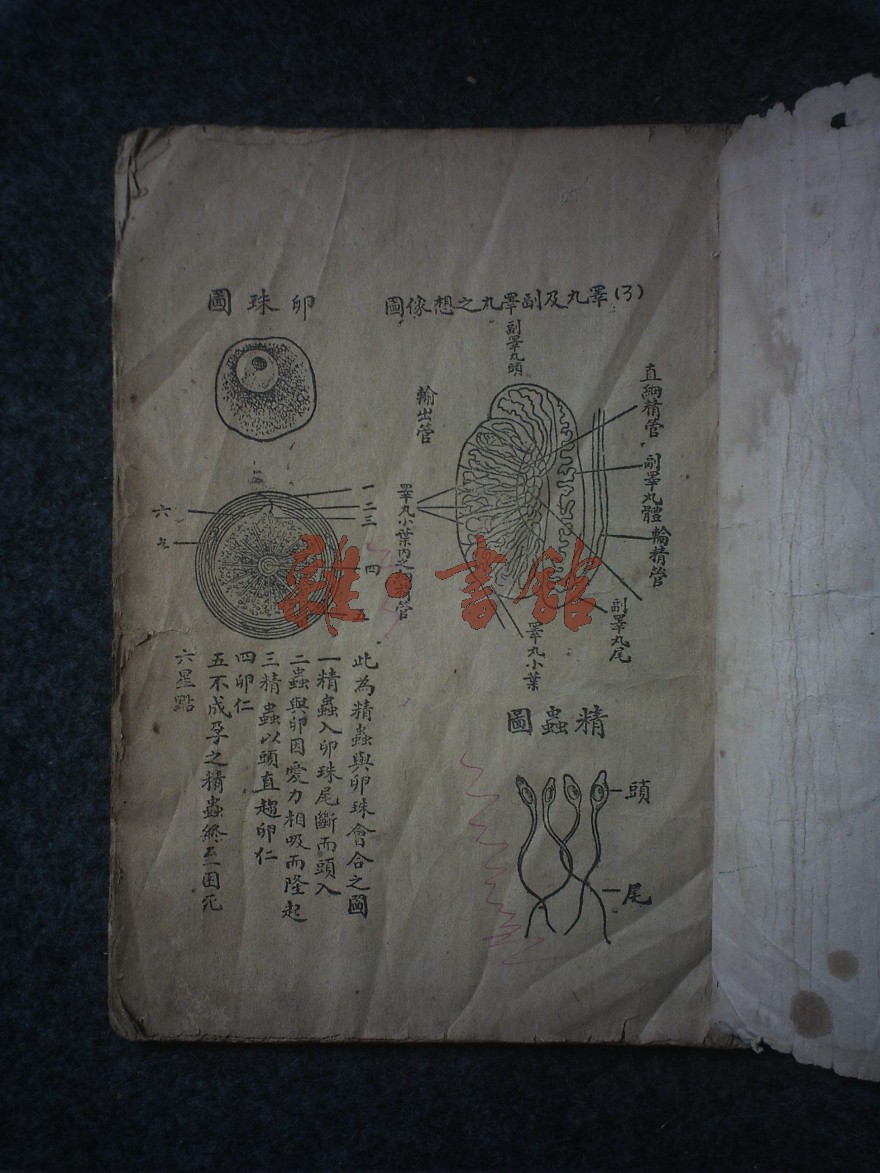 (3)睪丸及副睪丸之想像圖
副睪丸頭
直細精管
輸出管
副睪丸體
輸精管
睪丸小葉內之
管
副睪丸尾
睪丸小葉
精蟲圖
頭
尾
卵珠圖
一
二
三
四
六
此為精蟲與卵珠會合之圖
一精蟲入卵珠尾斷而頭入
二蟲與卵因愛力相吸而隆起
三精蟲以頭直趨卵仁
四卵仁
五不成孕之精蟲終至困死
六星點
雜·書館